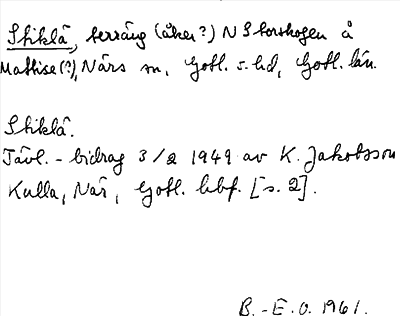 Stiklå, terräng (åker?) N Storskogen å
Mattise(?), Närs sn, Gotl. s. hd, Gotl. län.
Stiklå.
Tävl.-bidrag 3/2 1949 av K. Jakobsson
Kulla, När, Gotl. hbf. [s. 2].
B.-E. O. 1961.